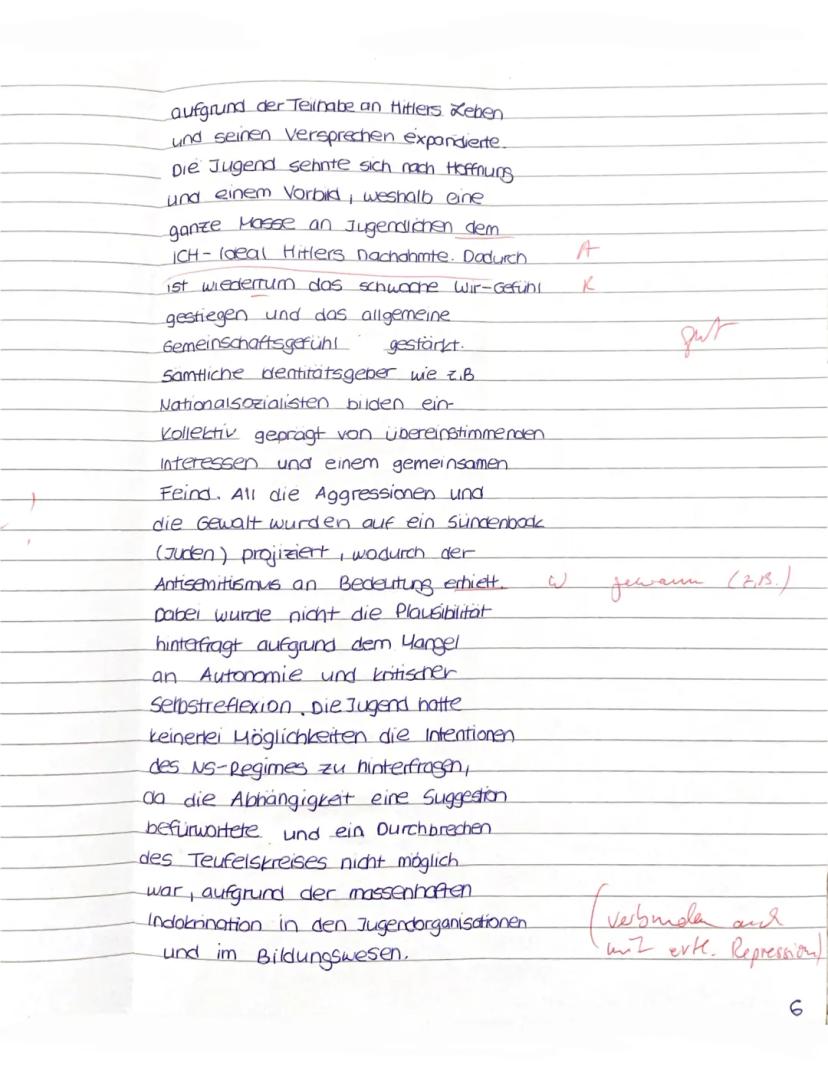 aufgrund der Teilhabe an Hitlers Leben
und seinen Versprechen expandierte.
Die Jugend sehnte sich nach Hoffnung
und einem Vorbild, weshalb eine
ganze Masse an Jugendlichen dem
ICH-Ideal Hitlers nachahmte. Dadurch A
ist wiederrum das schwache Wir-Gefühl K
gestiegen und das allgemeine
Gemeinschaftsgefühl gestärkt. gut
Sämtliche Identitätsgeber wie z.B
Nationalsozialisten bilden ein
Kollektiv geprägt von übereinstimmenden
Interessen und einem gemeinsamen
Feind. All die Aggressionen und
die Gewalt wurden auf ein Sündenbock
(Juden) projiziert, wodurch der
Antisemitismus an Bedeutung erhielt. W gewann (z.B.)
Dabei wurde nicht die Plausibilität
hinterfragt aufgrund dem Mangel
an Autonomie und kritischer
Selbstreflexion. Die Jugend hatte
keinerlei Möglichkeiten die Intentionen
des NS-Regimes zu hinterfragen,
da die Abhängigkeit eine Suggestion
befürwortete und ein Durchbrechen
des Teufelskreises nicht möglich
war, aufgrund der massenhaften
Indokrination in den Jugendorganisationen (verbunden auch
und im Bildungswesen. mit evtl. Repression)
6